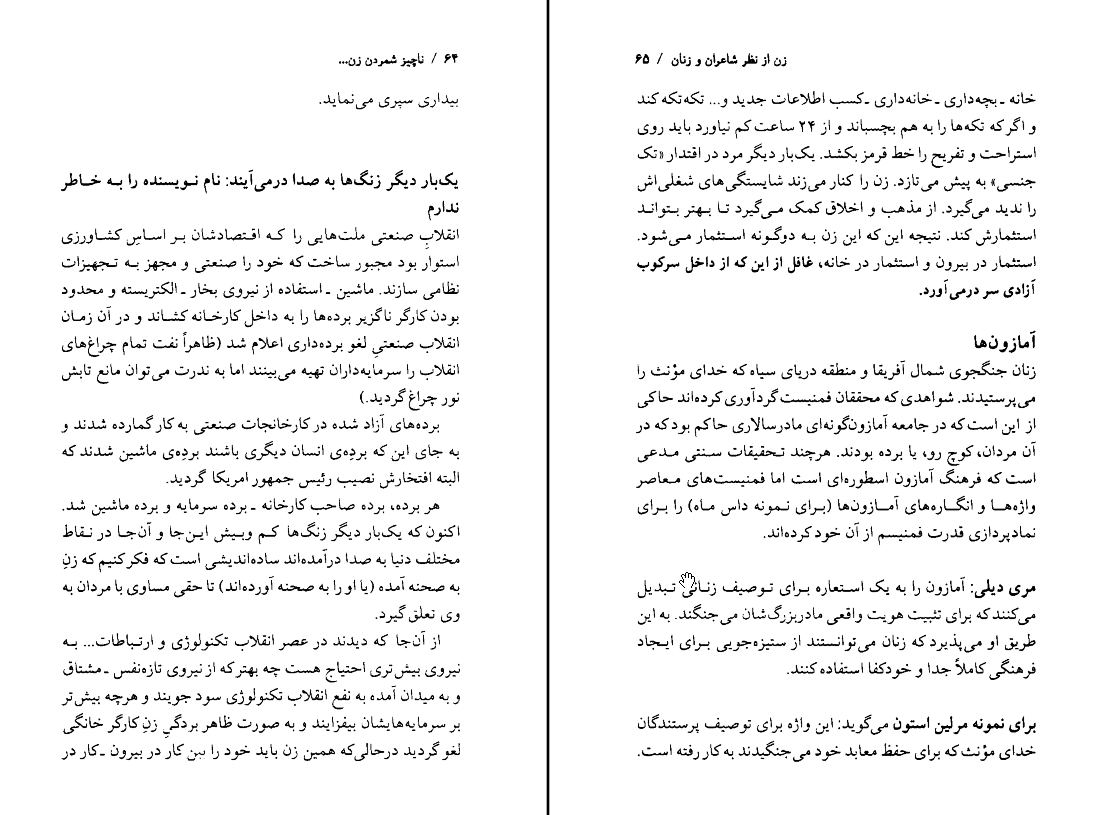 ۶۴ / ناچیز شمردن زن...
بیداری سپری می‌نماید.
یک‌بار دیگر زنگ‌ها به صدا درمی‌آیند: نام نویسنده را به خاطر
ندارم
انقلابِ صنعتی ملت‌هایی را که اقتصادشان بر اساسِ کشاورزی
استوار بود مجبور ساخت که خود را صنعتی و مجهز به تجهیزات
نظامی سازند. ماشین ـ استفاده از نیروی بخار ـ الکتریسته و محدود
بودن کارگر ناگزیر برده‌ها را به داخل کارخانه کشاند و در آن زمان
انقلاب صنعتیِ لغو برده‌داری اعلام شد (ظاهراً نفت تمام چراغ‌های
انقلاب را سرمایه‌داران تهیه می‌بینند اما به ندرت می‌توان مانع تابش
نور چراغ گردید.)
برده‌های آزاد شده در کارخانجات صنعتی به کار گمارده شدند و
به جای این که برده‌ی انسان دیگری باشند برده‌ی ماشین شدند که
البته افتخارش نصیب رئیس جمهور امریکا گردید.
هر برده، برده صاحب کارخانه ـ برده سرمایه و برده ماشین شد.
اکنون که یک‌بار دیگر زنگ‌ها کم وبیش این‌جا و آن‌جا در نقاط
مختلف دنیا به صدا درآمده‌اند ساده‌اندیشی است که فکر کنیم که زنِ
به صحنه آمده (یا او را به صحنه آورده‌اند) تا حقی مساوی با مردان به
وی تعلق گیرد.
از آن‌جا که دیدند در عصر انقلاب تکنولوژی و ارتباطات... به
نیروی بیش‌تری احتیاج هست چه بهتر که از نیروی تازه‌نفس ـ مشتاق
و به میدان آمده به نفع انقلاب تکنولوژی سود جویند و هرچه بیش‌تر
بر سرمایه‌هایشان بیفزایند و به صورت ظاهر بردگیِ زنِ کارگر خانگی
لغو گردید درحالی‌که همین زن باید خود را بین کار در بیرون ـ کار در
زن از نظر شاعران و زنان / ۶۵
خانه ـ بچه‌داری ـ خانه‌داری ـ کسب اطلاعات جدید و... تکه‌تکه کند
و اگر که تکه‌ها را به هم بچسباند و از ۲۴ ساعت کم نیاورد باید روی
استراحت و تفریح را خط قرمز بکشد. یک‌بار دیگر مرد در اقتدار «تک
جنسی» به پیش می‌تازد. زن را کنار می‌زند شایستگی‌های شغلی‌اش
را ندید می‌گیرد. از مذهب و اخلاق کمک می‌گیرد تا بهتر بتواند
استثمارش کند. نتیجه این که این زن به دوگونه استثمار می‌شود.
استثمار در بیرون و استثمار در خانه، غافل از این که از داخل سرکوب
آزادی سر درمی‌آورد.
آمازون‌ها
زنان جنگجوی شمال آفریقا و منطقه دریای سیاه که خدای مؤنث را
می‌پرستیدند. شواهدی که محققان فمنیست گردآوری کرده‌اند حاکی
از این است که در جامعه آمازون‌گونه‌ای مادرسالاری حاکم بود که در
آن مردان، کوچ رو، یا برده بودند. هرچند تحقیقات سنتی مدعی
است که فرهنگ آمازون اسطوره‌ای است اما فمنیست‌های معاصر
واژه‌ها و انگاره‌های آمازون‌ها (برای نمونه داس ماه) را برای
نمادپردازی قدرت فمنیسم از آن خود کرده‌اند.
مری دیلی: آمازون را به یک استعاره برای توصیف زنانی تبدیل
می‌کنند که برای تثبیت هویت واقعی مادربزرگ‌شان می‌جنگند. به این
طریق او می‌پذیرد که زنان می‌توانستند از ستیزه‌جویی برای ایجاد
فرهنگی کاملاً جدا و خودکفا استفاده کنند.
برای نمونه مرلین استون می‌گوید: این واژه برای توصیف پرستندگان
خدای مؤنث که برای حفظ معابد خود می‌جنگیدند به کار رفته است.